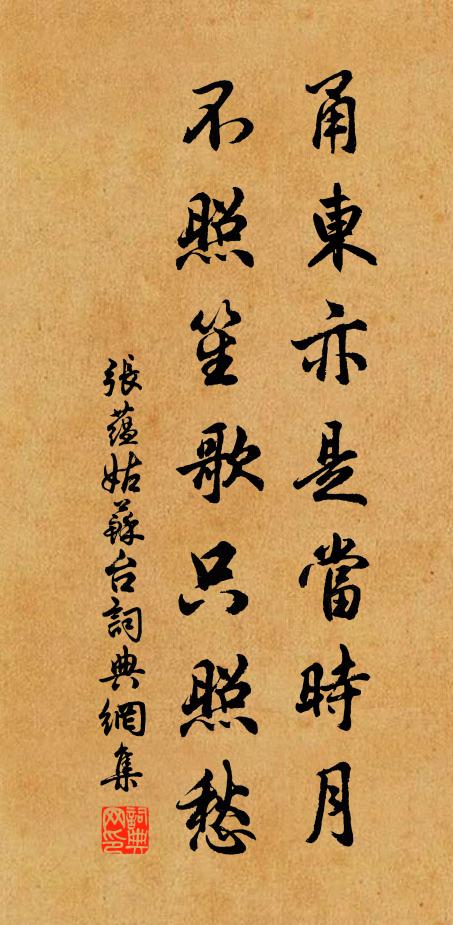 甬東亦是當時月
不照笙歌只照愁
張蘊姑蘇台詞典網集
詞典网印